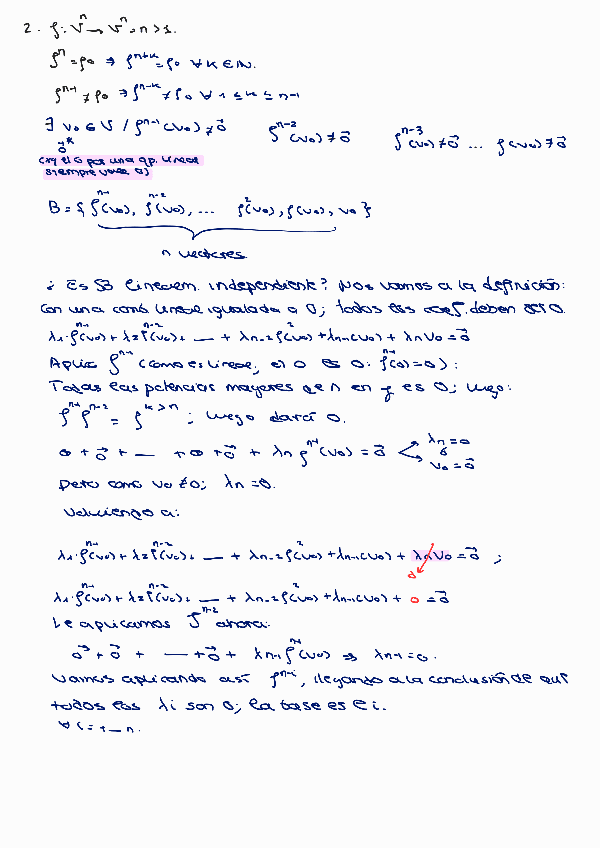 2. f: Vⁿ → Vⁿ, n > 1.
fⁿ = f₀ ⇒ fⁿ⁺ᵏ = f₀ ∀ k ∈ ℕ.
fⁿ⁻¹ ≠ f₀ ⇒ fⁿ⁻ᵏ ≠ f₀ ∀ 1 ≤ k ≤ n-1
∃ v₀ ∈ V / fⁿ⁻¹(v₀) ≠ 0⃗ fⁿ⁻²(v₀) ≠ 0⃗ fⁿ⁻³(v₀) ≠ 0⃗ ... f(v₀) ≠ 0⃗
0⃗*
(xq el 0 por una ap. lineal
siempre vale 0)
B = { fⁿ⁻¹(v₀), fⁿ⁻²(v₀), ... f²(v₀), f(v₀), v₀ }
n vectores
¿Es B linealm. independiente? Nos vamos a la definición:
Con una comb lineal igualada a 0; todos los coef. deben ser 0.
λ₁·fⁿ⁻¹(v₀) + λ₂fⁿ⁻²(v₀) + — + λn-2 f²(v₀) + λn-1 f(v₀) + λn v₀ = 0⃗
Aplico fⁿ⁻¹ (como es lineal, el 0 es 0: fⁿ⁻¹(0) = 0):
Todas las potencias mayores que n en f es 0; luego:
fⁿ⁻¹ fⁿ⁻² = f^k>n ; luego dará 0.
0 + 0⃗ + — + 0 + 0⃗ + λn fⁿ⁻¹(v₀) = 0⃗ λn = 0
ó
v₀ = 0⃗
pero como v₀ ≠ 0; λn = 0.
Volviendo a:
λ₁·fⁿ⁻¹(v₀) + λ₂fⁿ⁻²(v₀) + — + λn-2 f²(v₀) + λn-1 f(v₀) + λn v₀ = 0⃗ ;
0
λ₁·fⁿ⁻¹(v₀) + λ₂fⁿ⁻²(v₀) + — + λn-2 f²(v₀) + λn-1 f(v₀) + 0 = 0⃗
Le aplicamos fⁿ⁻² ahora:
0⃗ + 0⃗ + — + 0⃗ + λn-1 fⁿ⁻¹(v₀) ⇒ λn-1 = 0.
Vamos aplicando así fⁿ⁻ⁱ, llegando a la conclusión de que
todos los λi son 0; la base es l i.
∀ i = 1 — n.